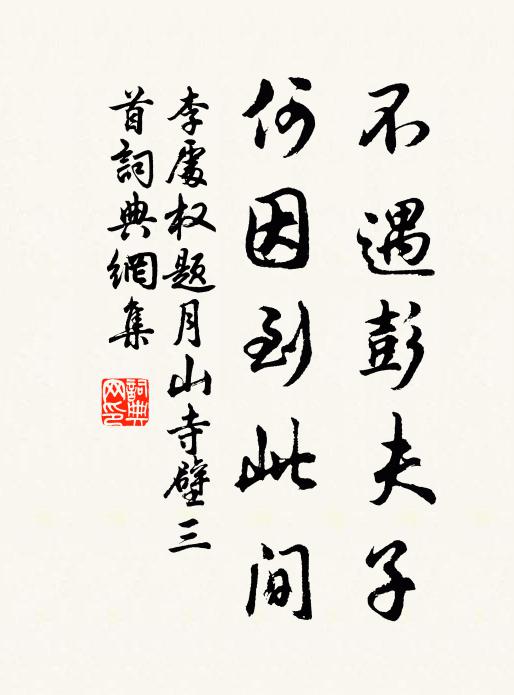 不遇彭夫子
何因到此间
李處权题月山寺壁三
首詞典網集
詞典网印